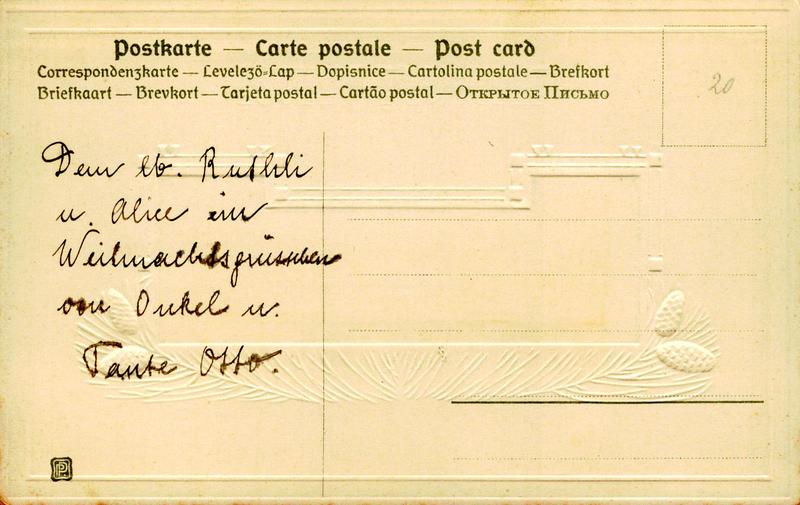 Postkarte — Carte postale — Post card
Correspondenzkarte — Levelező-Lap — Dopisnice — Cartolina postale — Brefkort
Briefkaart — Brevkort — Tarjeta postal — Cartão postal — Открытое Письмо
20
Dem lb. Ruthli
u. Alice ein
Weihnachtsgrüsschen
von Onkel u.
Tante Otto.